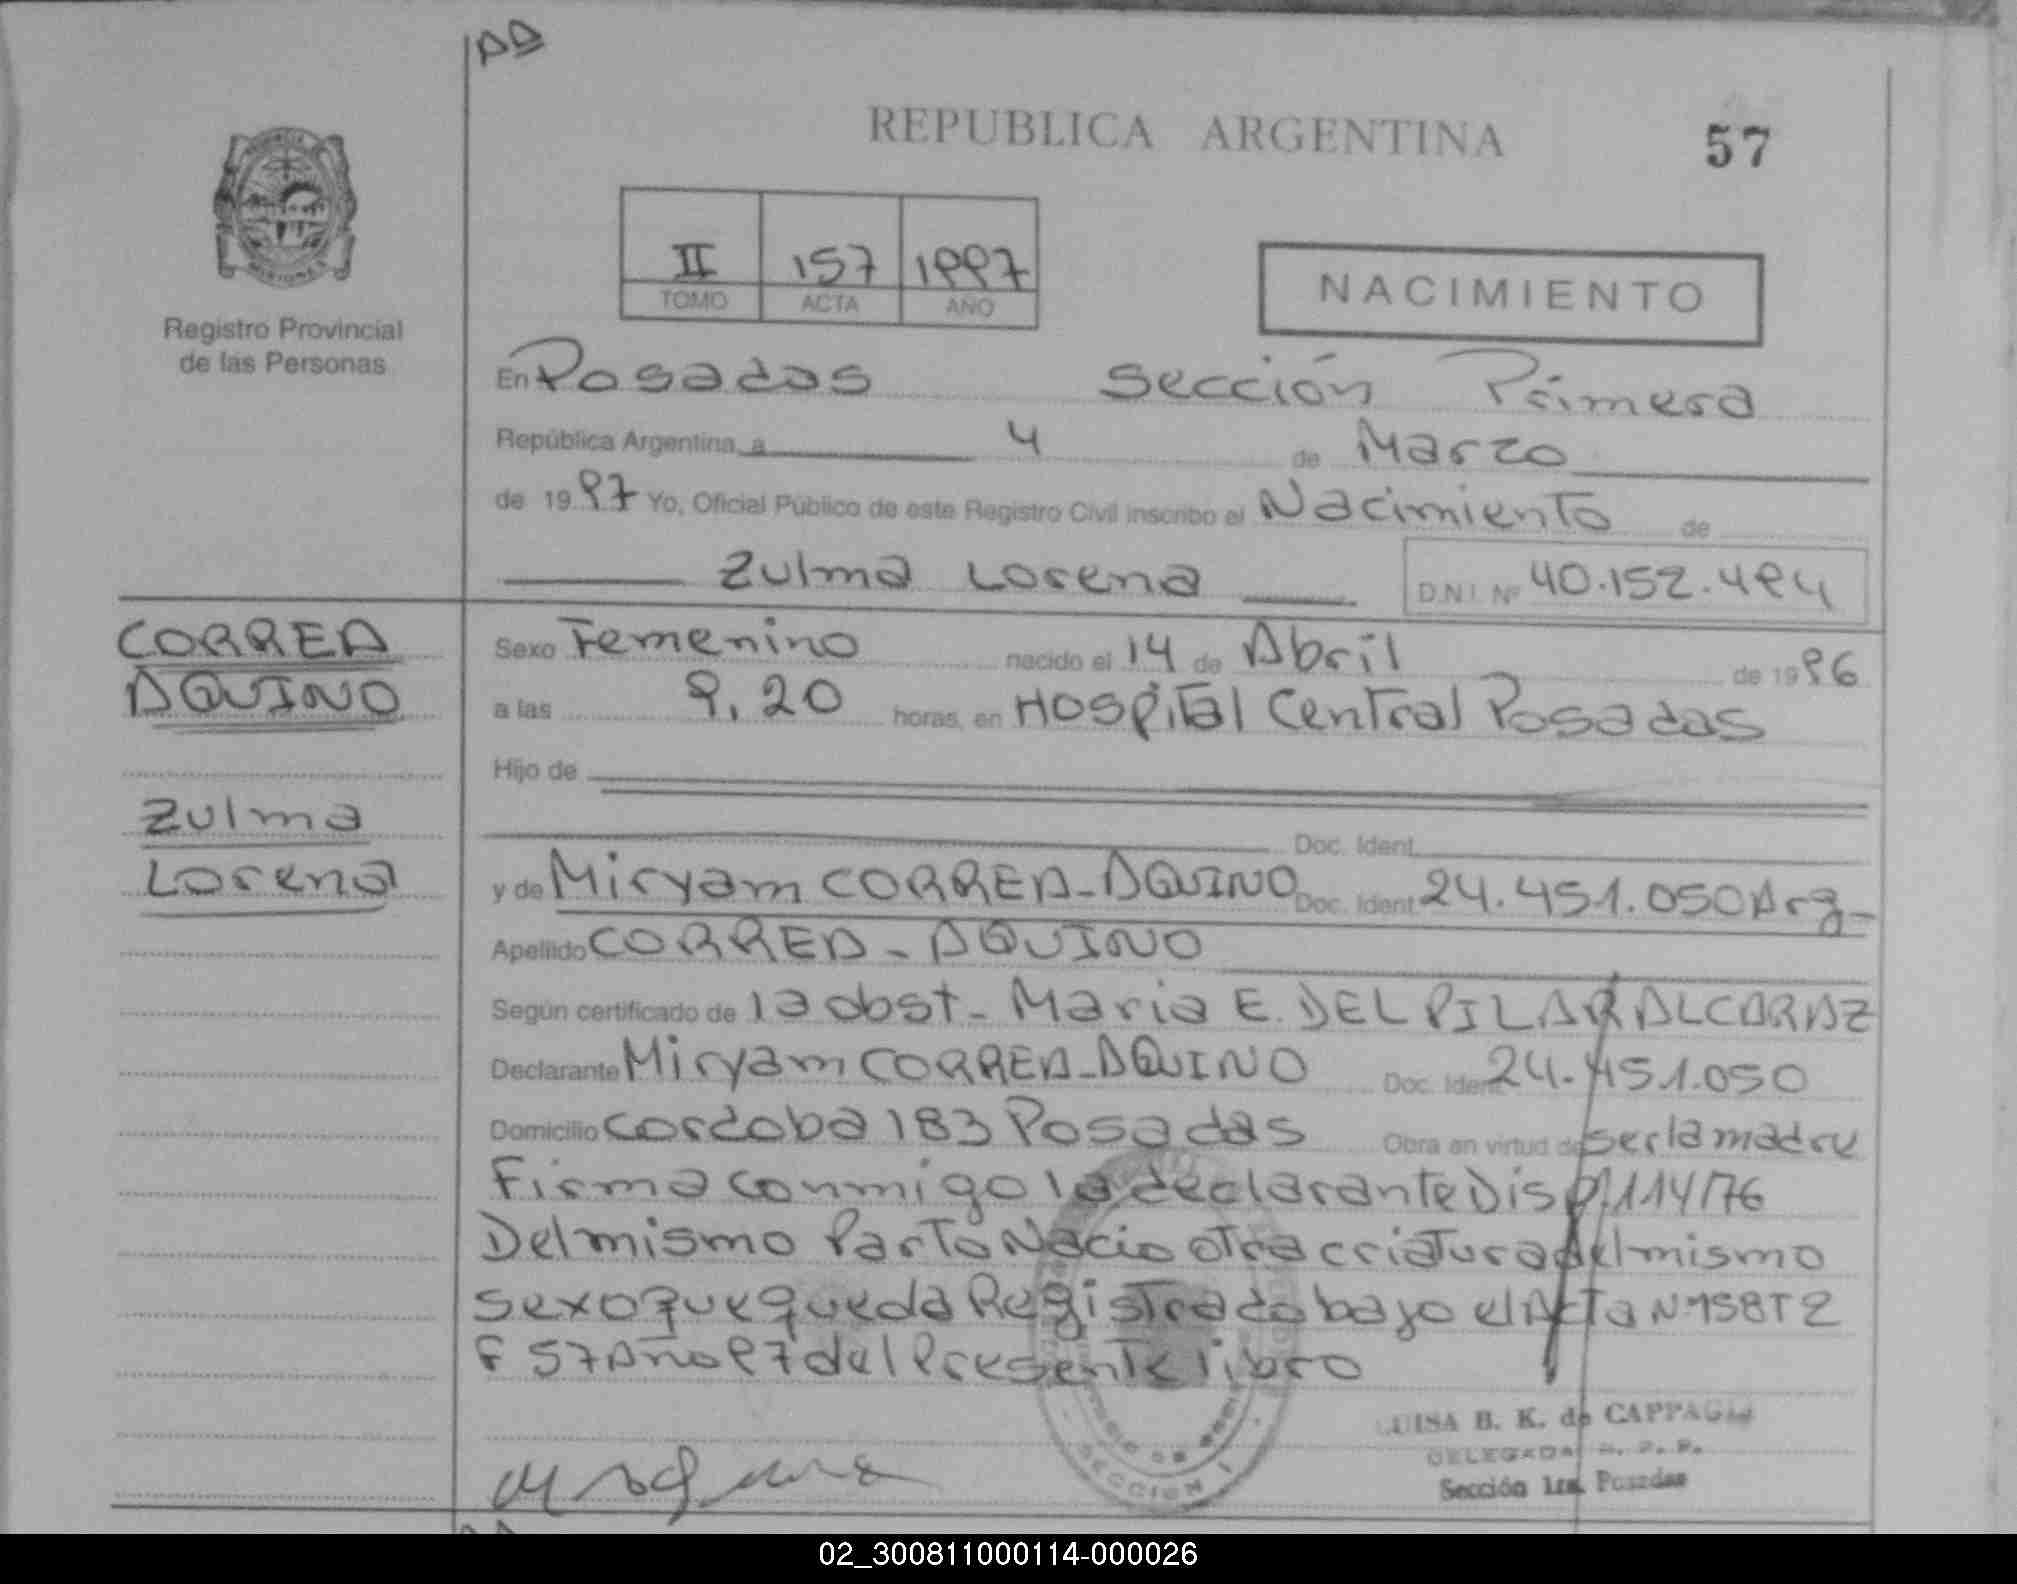 REPUBLICA ARGENTINA
57
II 157 1997
TOMO ACTA AÑO
NACIMIENTO
Registro Provincial
de las Personas
En Posadas Sección Primera
República Argentina, a 4 de Marzo
de 1997 Yo, Oficial Público de este Registro Civil inscribo el Nacimiento de
Zulma Lorena D.N.I. Nº 40.152.494
CORREA
AQUINO
Zulma
Lorena
Sexo Femenino nacido el 14 de Abril de 1996
a las 9,20 horas, en Hospital Central Posadas
Hijo de
Doc. Ident
y de Miryam CORREA-AQUINO Doc. Ident 24.451.050 Arg-
Apellido CORREA-AQUINO
Según certificado de la obst- Maria E. DEL PILAR ALCARAZ
Declarante Miryam CORREA-AQUINO Doc. Ident 24.451.050
Domicilio Cordoba 183 Posadas Obra en virtud de ser la madre
Firma conmigo la declarante Disp. 114/76
Del mismo Parto Nacio otra criatura del mismo
sexo que queda Registrado bajo el Acta Nº 158 T 2
F 57 Año 97 del Presente libro
LUISA B. K. de
DELEGADA R. P. P.
Sección 1ra. Posadas
SECCION 1
02_300811000114-000026